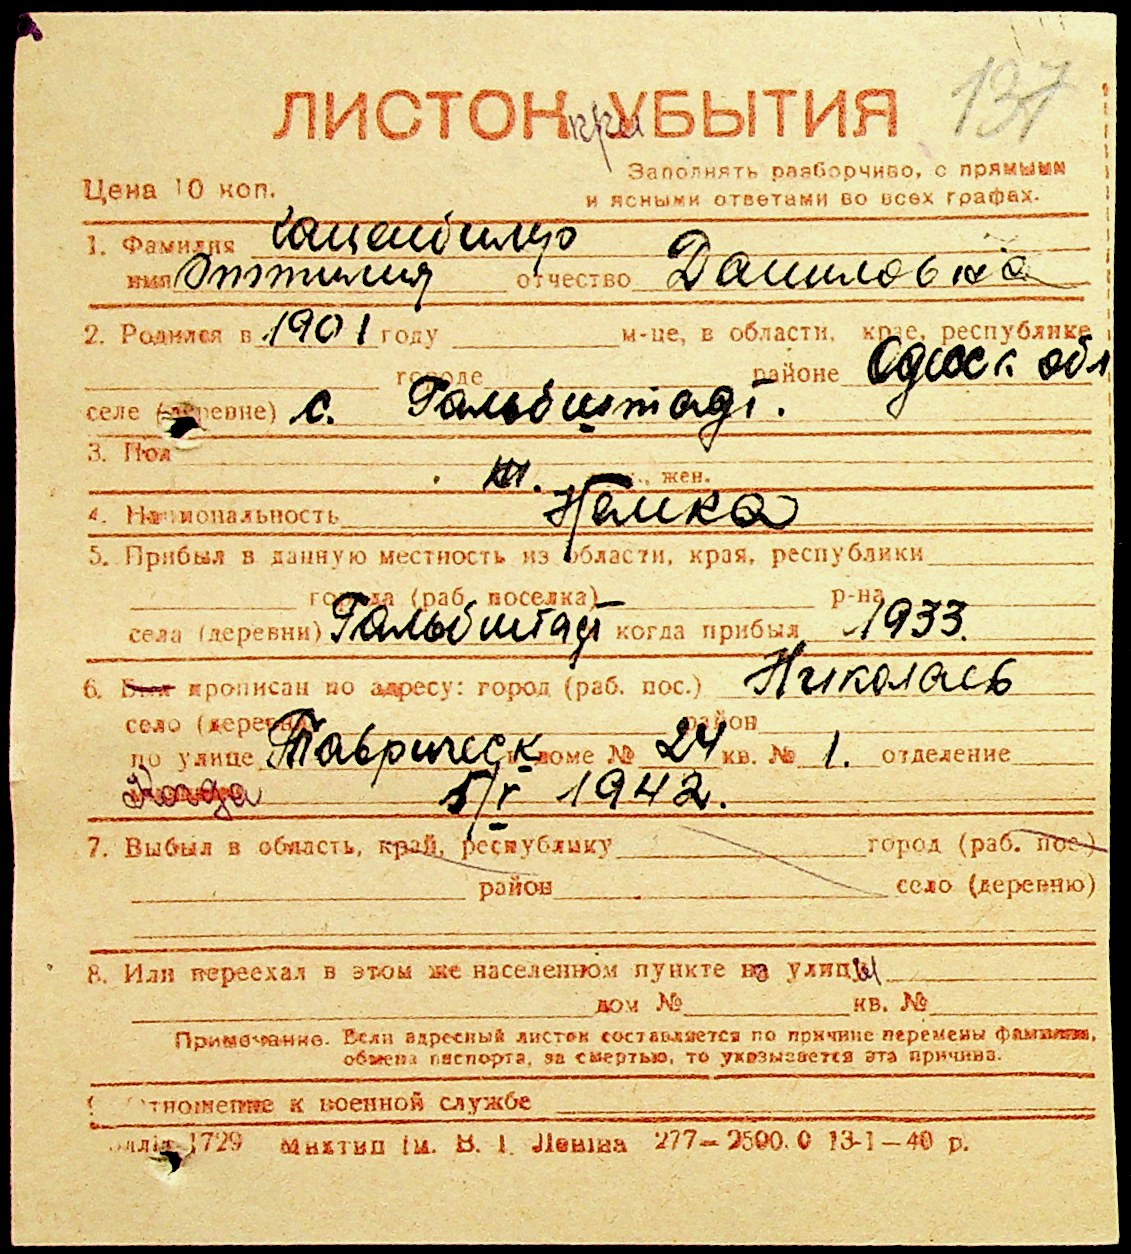 137
ЛИСТОК при УБЫТИЯ
Цена 10 коп.
Заполнять разборчиво, с прямыми
и ясными ответами во всех графах.
1. Фамилия Каценбилер
имя Оттилия отчество Даниловна
2. Родился в 1901 году м-це, в области, крае, республике
городе районе Одесск обл
селе (деревне) с. Гальбштадт.
3. Пол
ж. жен.
4. Национальность Немка
5. Прибыл в данную местность из области, края, республики
города (раб. поселка) р-на
села (деревни) Гальбштадт когда прибыл 1933.
6. Был прописан по адресу: город (раб. пос.) Николаев
село (деревня) район
по улице Таврическ в доме № 24 кв. № 1. отделение
Когда 5/V 1942.
7. Выбыл в область, край, республику город (раб. пос.)
район село (деревню)
8. Или переехал в этом же населенном пункте на улицы
дом № кв. №
Примечание. Если адресный листок составляется по причине перемены фамилии,
обмена паспорта, за смертью, то указывается эта причина.
9. Отношение к военной службе
1729 Миктип ім. В. І. Леніна 277—2500.0 13-1—40 р.